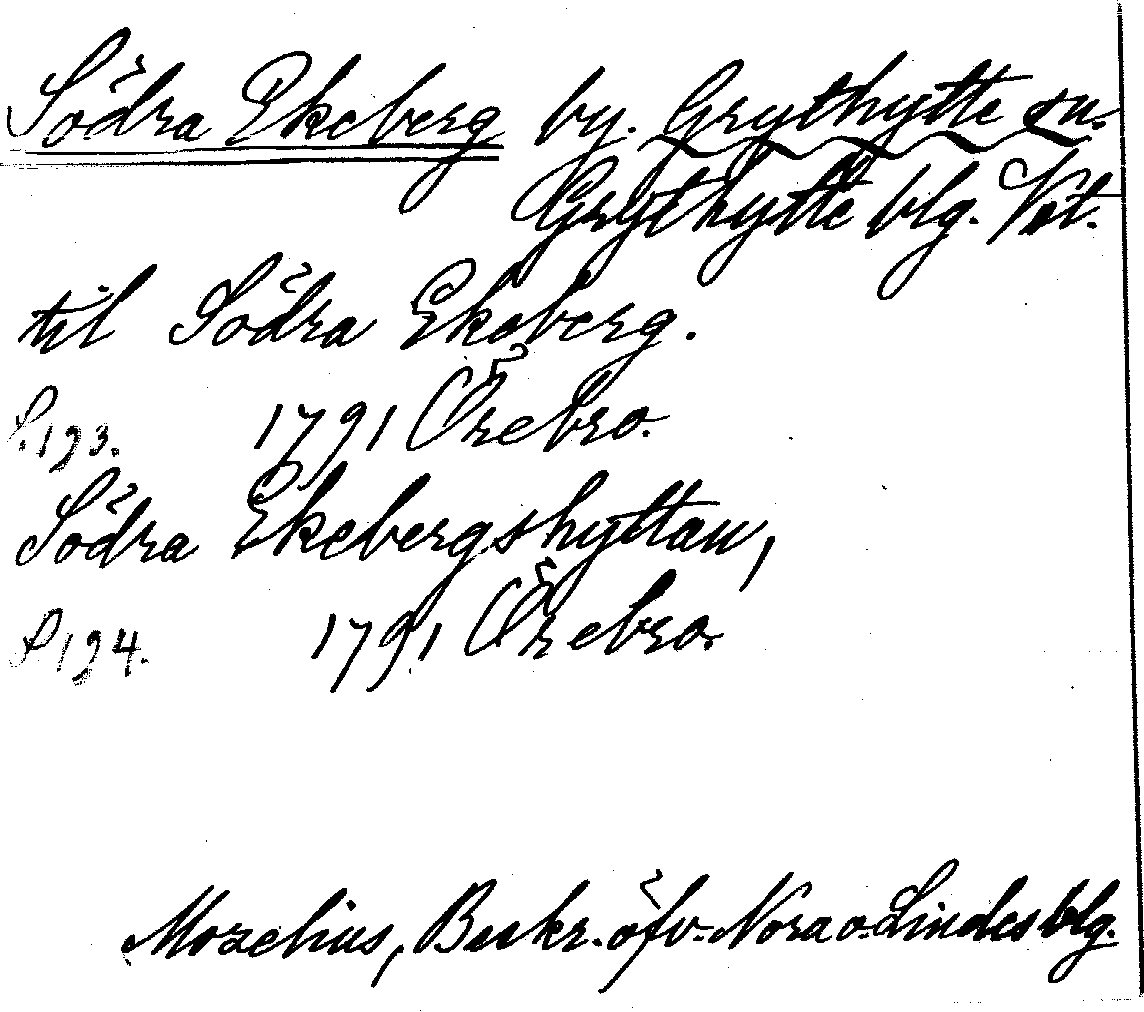 Södra Ekeberg by. Grythytte sn.
Grythytte blg. Vstl.
til Södra Ekeberg.
S. 193. 1791 Örebro.
Södra Ekebergshyttan,
S 194. 1791 Örebro.
Morelius, Beskr. öfv. Nora o. Lindes blg.